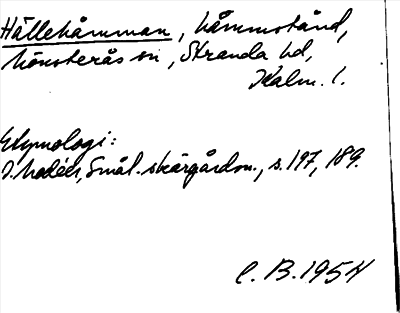 Hällehamman, hammstånd,
Mönsterås sn, Stranda hd,
Kalm. l.
Etymologi:
I. Modéer, Smål. skärgårdsn., s. 197, 189.
C. B. 1954